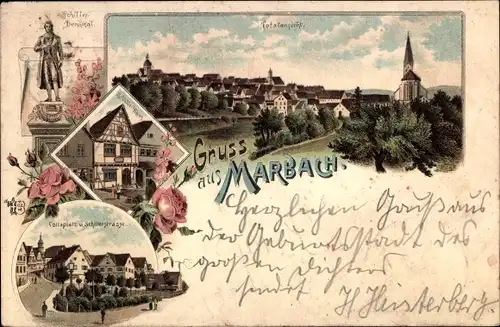 Schiller-
Denkmal.
Totalansicht.
Gruss
aus MARBACH.
Cottaplatz u. Schillerstrasse.
Herzlichen Gruß aus
der Geburtsstadt des
großen Dichters
sendet H. Heisterberg